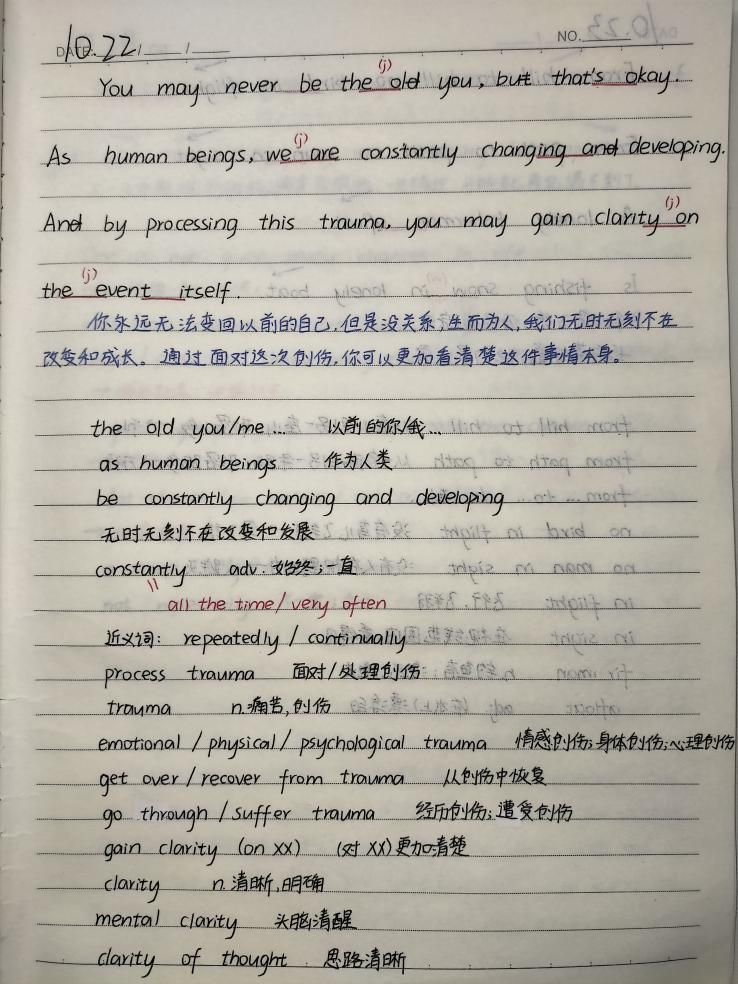 10.22
DATE
NO.
(j)
You may never be the old you, but that's okay.
(j)
As human beings, we are constantly changing and developing.
(j)
And by processing this trauma, you may gain clarity on
(j)
the event itself.
你永远无法变回以前的自己,但是没关系;生而为人,我们无时无刻不在
改变和成长。通过面对这次创伤,你可以更加看清楚这件事情本身。
the old you/me... 以前的你/我...
as human beings 作为人类
be constantly changing and developing
无时无刻不在改变和发展
constantly adv. 始终;一直
all the time/very often
近义词: repeatedly / continually
process trauma 面对/处理创伤
trauma n.痛苦,创伤
emotional / physical / psychological trauma 情感创伤;身体创伤;心理创伤
get over / recover from trauma 从创伤中恢复
go through / suffer trauma 经历创伤;遭受创伤
gain clarity (on XX) (对XX)更加清楚
clarity n.清晰,明确
mental clarity 头脑清醒
clarity of thought 思路清晰